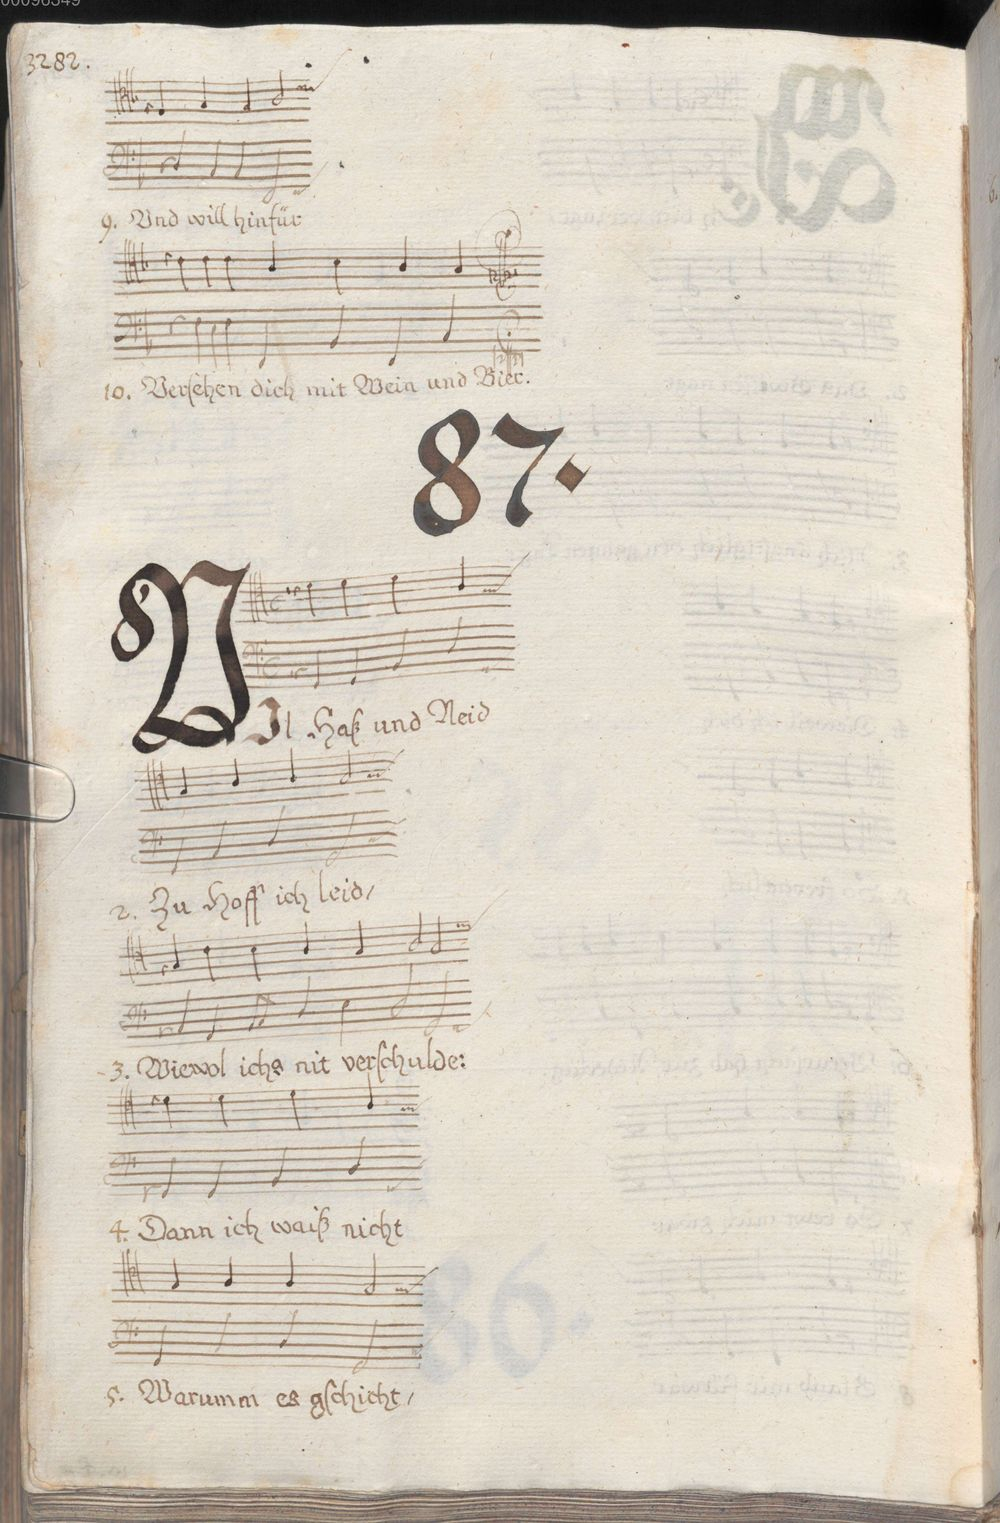 00096349
3282.
9. Vnd will hinfür
10. Versehen dich mit Wein und Bier.
87.
VIl Haß und Neid
2. Zu Hoff ich leid/
3. Wiewol ichs nit verschulde:
4. Dann ich waiß nicht
5. Warumm es gschicht/